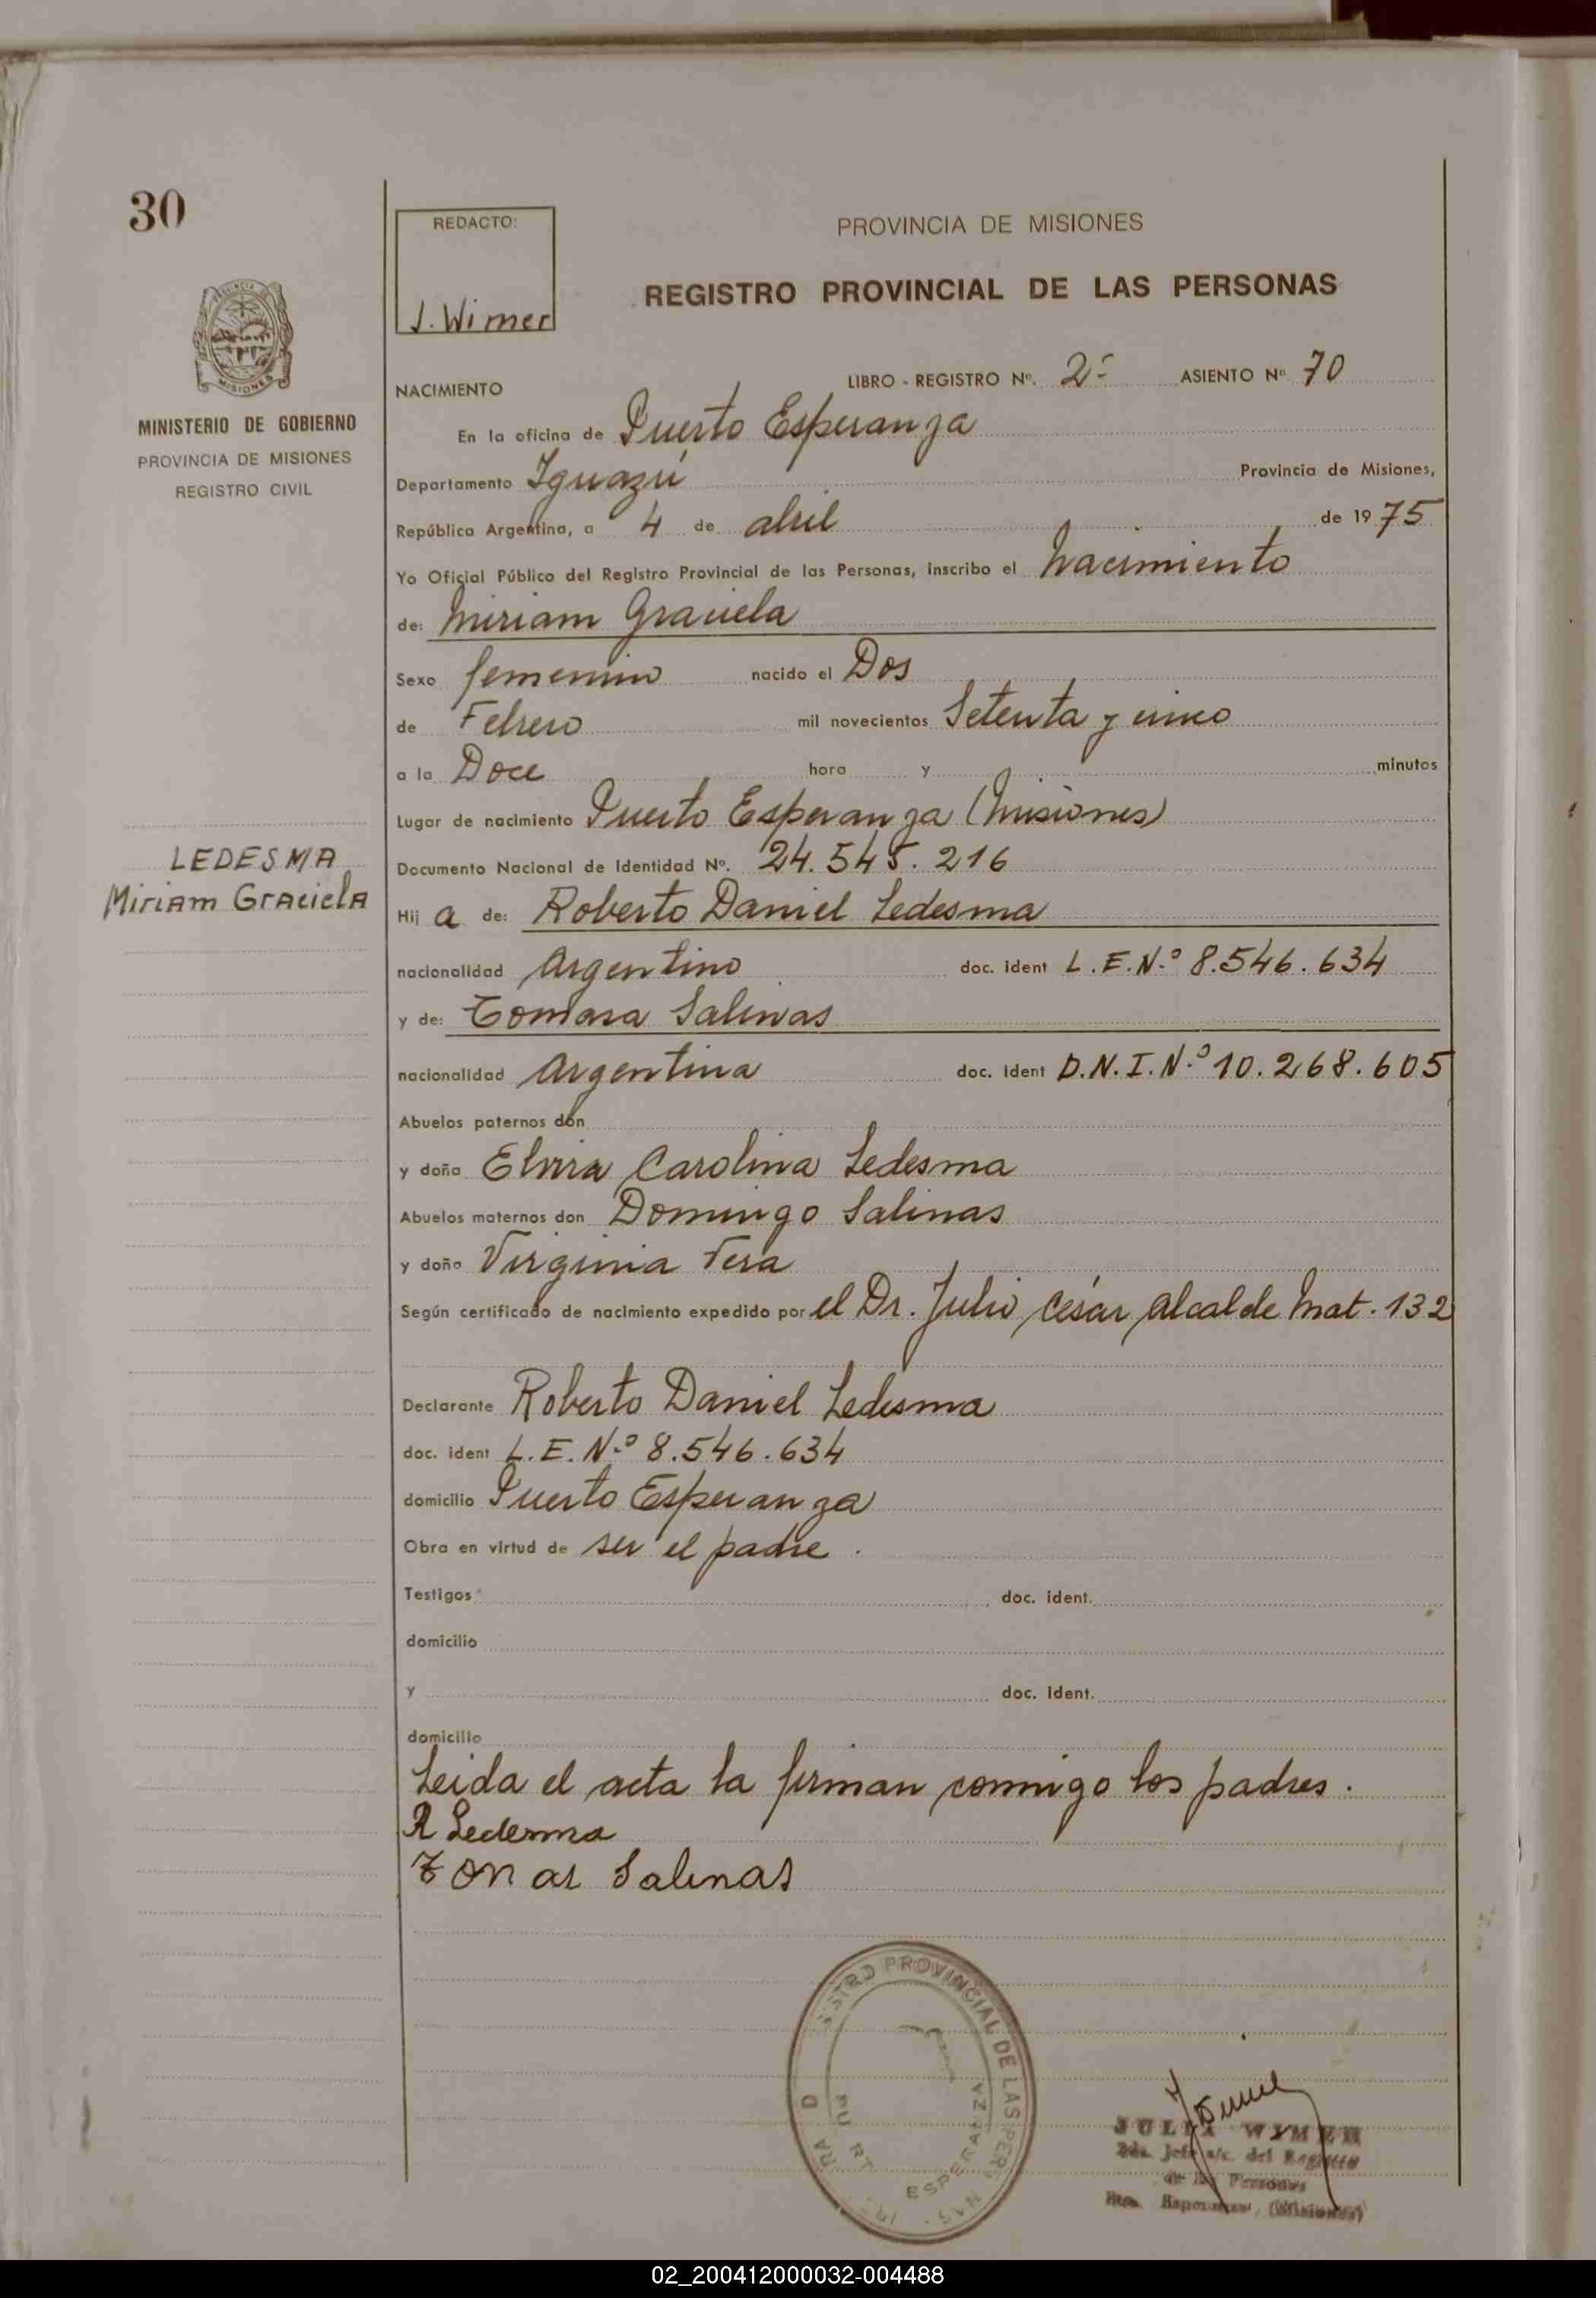 30
REDACTO:
J. Wimer
PROVINCIA DE MISIONES
REGISTRO PROVINCIAL DE LAS PERSONAS
PROVINCIA DE MISIONES
MINISTERIO DE GOBIERNO
PROVINCIA DE MISIONES
REGISTRO CIVIL
LEDESMA
Miriam Graciela
NACIMIENTO LIBRO - REGISTRO Nº. 2- ASIENTO Nº 70
En la oficina de Puerto Esperanza
Departamento Iguazú Provincia de Misiones,
República Argentina, a 4 de abril de 1975
Yo Oficial Público del Registro Provincial de las Personas, inscribo el Nacimiento
de: Miriam Graciela
Sexo femenino nacido el Dos
de Febrero mil novecientos Setenta y cinco
a la Doce hora y minutos
Lugar de nacimiento Puerto Esperanza (Misiones)
Documento Nacional de Identidad Nº. 24.545.216
Hij a de: Roberto Daniel Ledesma
nacionalidad Argentino doc. ident L.E.N.º 8.546.634
y de: Tomasa Salinas
nacionalidad Argentina doc. ident D.N.I.N.º 10.268.605
Abuelos paternos don
y doña Elvira Carolina Ledesma
Abuelos maternos don Domingo Salinas
y doña Virginia Vera
Según certificado de nacimiento expedido por el Dr. Julio César Alcalde Mat. 132
Declarante Roberto Daniel Ledesma
doc. ident L.E.N.º 8.546.634
domicilio Puerto Esperanza
Obra en virtud de ser el padre.
Testigos doc. ident.
domicilio
y doc. ident.
domicilio
Leida el acta la firman conmigo los padres.
R Ledesma
Tomas Salinas
PROVINCIAL DE LAS
ESPERANZA
JULIA WIMER
2da. Jefe a/c. del Registro
de las Personas
Pto. Esperanza, (Misiones)
02_200412000032-004488